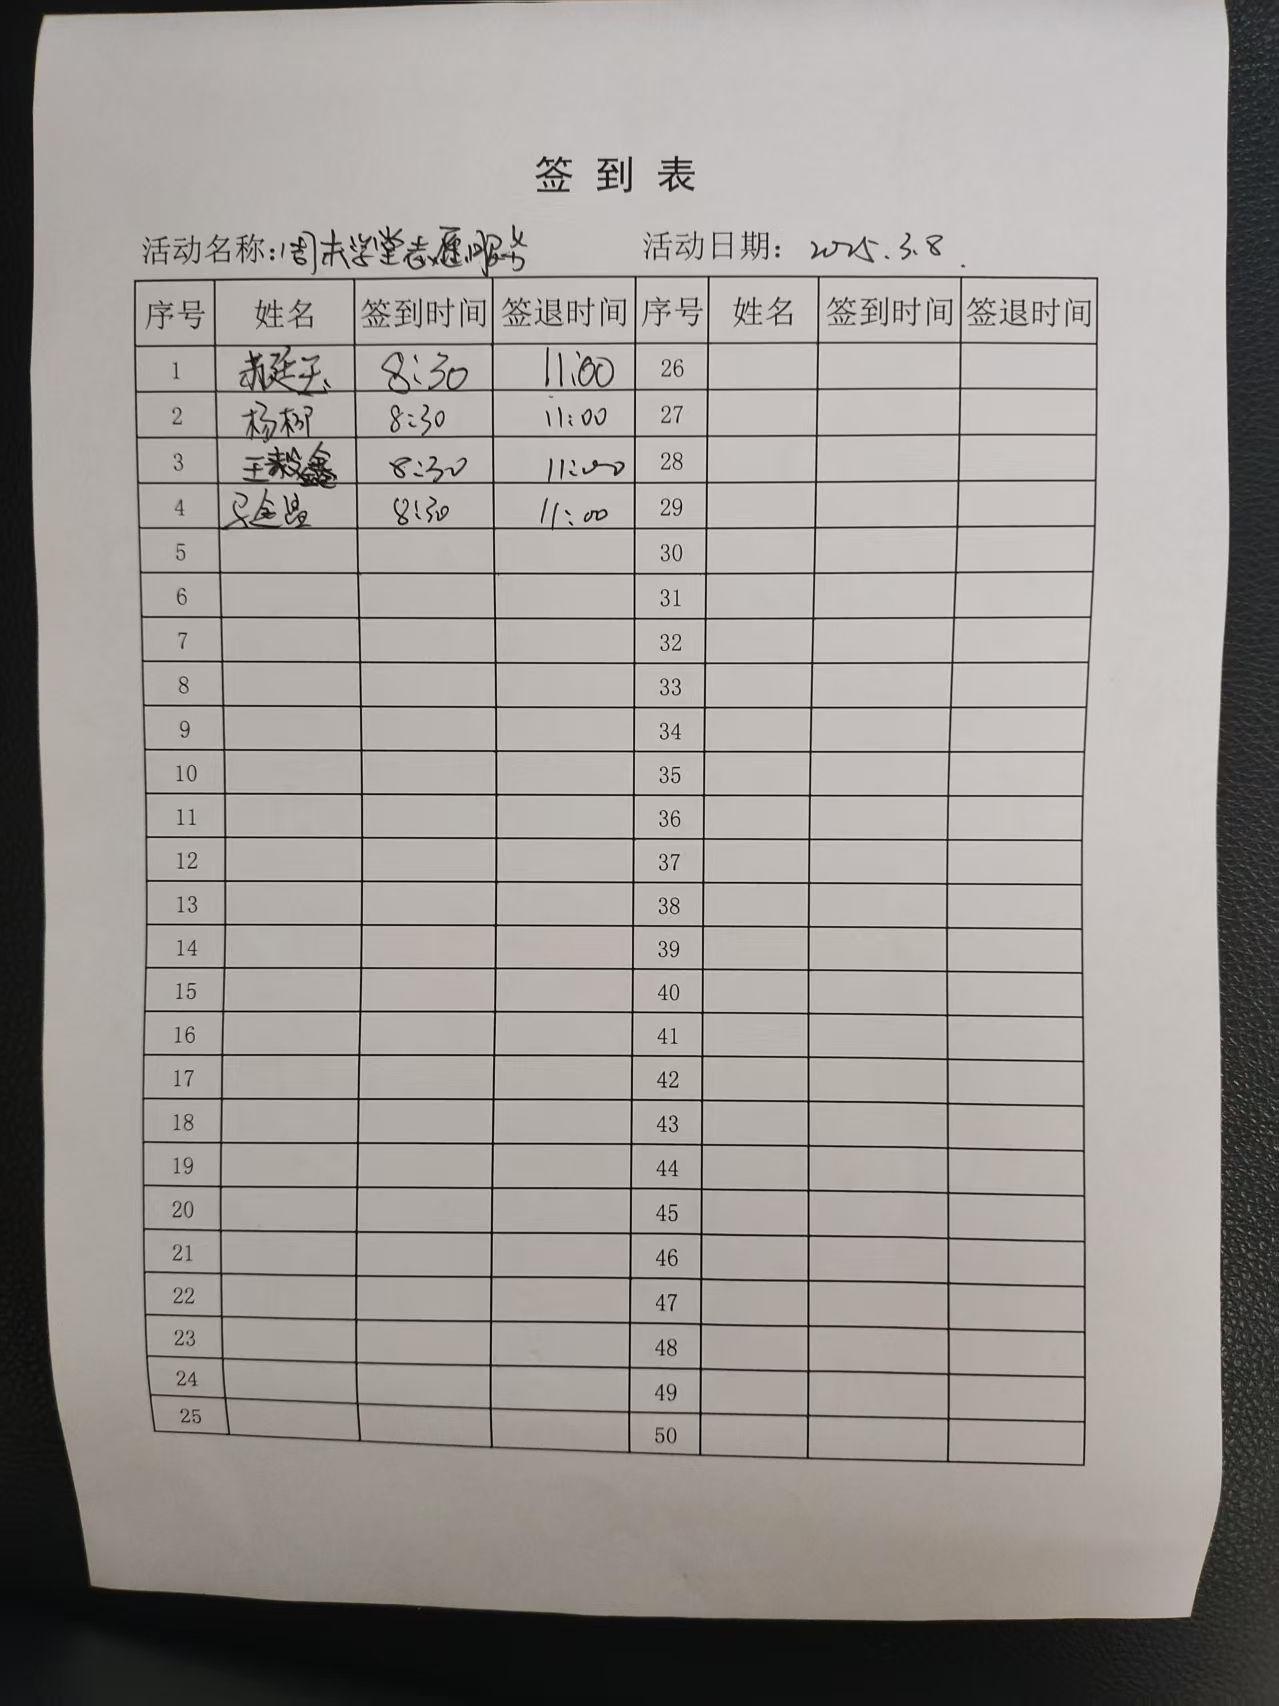 签到表
活动名称:周末学堂志愿服务 活动日期: 2025.3.8.
序号 姓名 签到时间 签退时间 序号 姓名 签到时间 签退时间
1 8:30 11:00 26
2 杨柳 8:30 11:00 27
3 王毅鑫 8:30 11:00 28
4 8:30 11:00 29
5 30
6 31
7 32
8 33
9 34
10 35
11 36
12 37
13 38
14 39
15 40
16 41
17 42
18 43
19 44
20 45
21 46
22 47
23 48
24 49
25 50